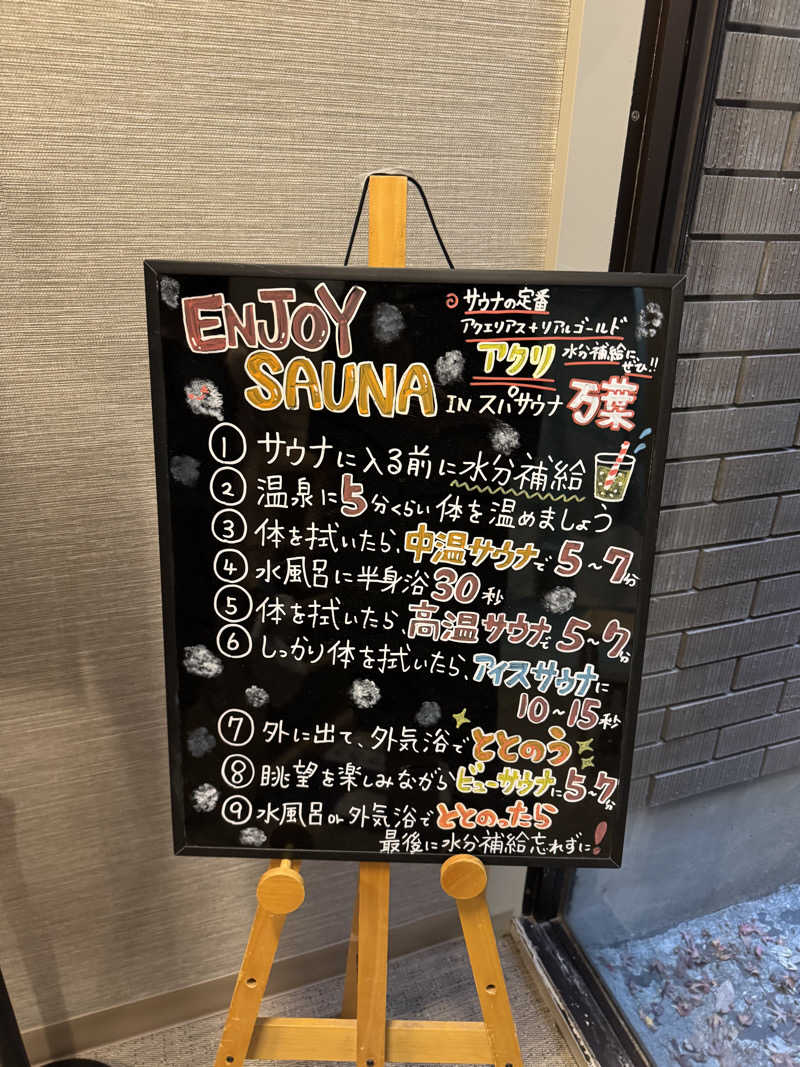 ENJOY
SAUNA
サウナの定番
アクエリアス+リアルゴールド
アクリ 水分補給に、ぜひ!!
IN スパサウナ 万葉
① サウナに入る前に水分補給
② 温泉に5分くらい体を温めましょう
③ 体を拭いたら、中温サウナで5~7分
④ 水風呂に半身浴30秒
⑤ 体を拭いたら、高温サウナで5~7分
⑥ しっかり体を拭いたら、アイスサウナに
10~15秒
⑦ 外に出て、外気浴でととのう
⑧ 眺望を楽しみながらビューサウナに5~7分
⑨ 水風呂or外気浴でととのったら
最後に水分補給忘れずに!